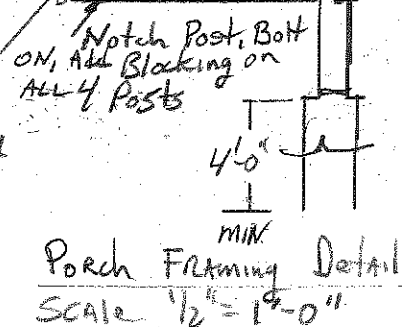 Notch Post, Bolt
ON, Add Blocking on
ALL 4 Posts
4'-0"
MIN.
Porch Framing Detail
Scale 1/2" = 1'-0"